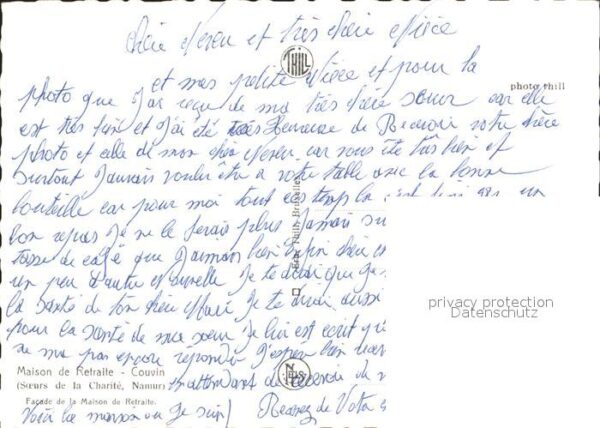 chère Neveu et très chère Nièce
THILL
et mes petite Nièce et pour la
photo thill
photo que J'ai reçu de ma très chère sœur car elle
est très bien et J'ai été très Heureuse de Recevoir votre chère
photo et celle de mon cher Neveu car vous ète très bien et
surtout J'aurais voulu ètre a votre table avec la bonne
bouteille car pour moi tout ces temps la un
bon repas Je ne le ferais plus Jamais
tasse de café que J'aimais bien Enfin chère
un peu d'autre nouvelle Je te dirai que
la santé de ton cher Je te dirai aussi
pour la santé de ma sœur Je lui est écrit
ne ma pas encore repondu J'espère bien
Maison de Retraite - Couvin
(Sœurs de la Charité, Namur)
en attendant de recevoir de
Façade de la Maison de Retraite.
Voila la maison ou Je suis) Recevez de Votre
privacy protection
Datenschutz